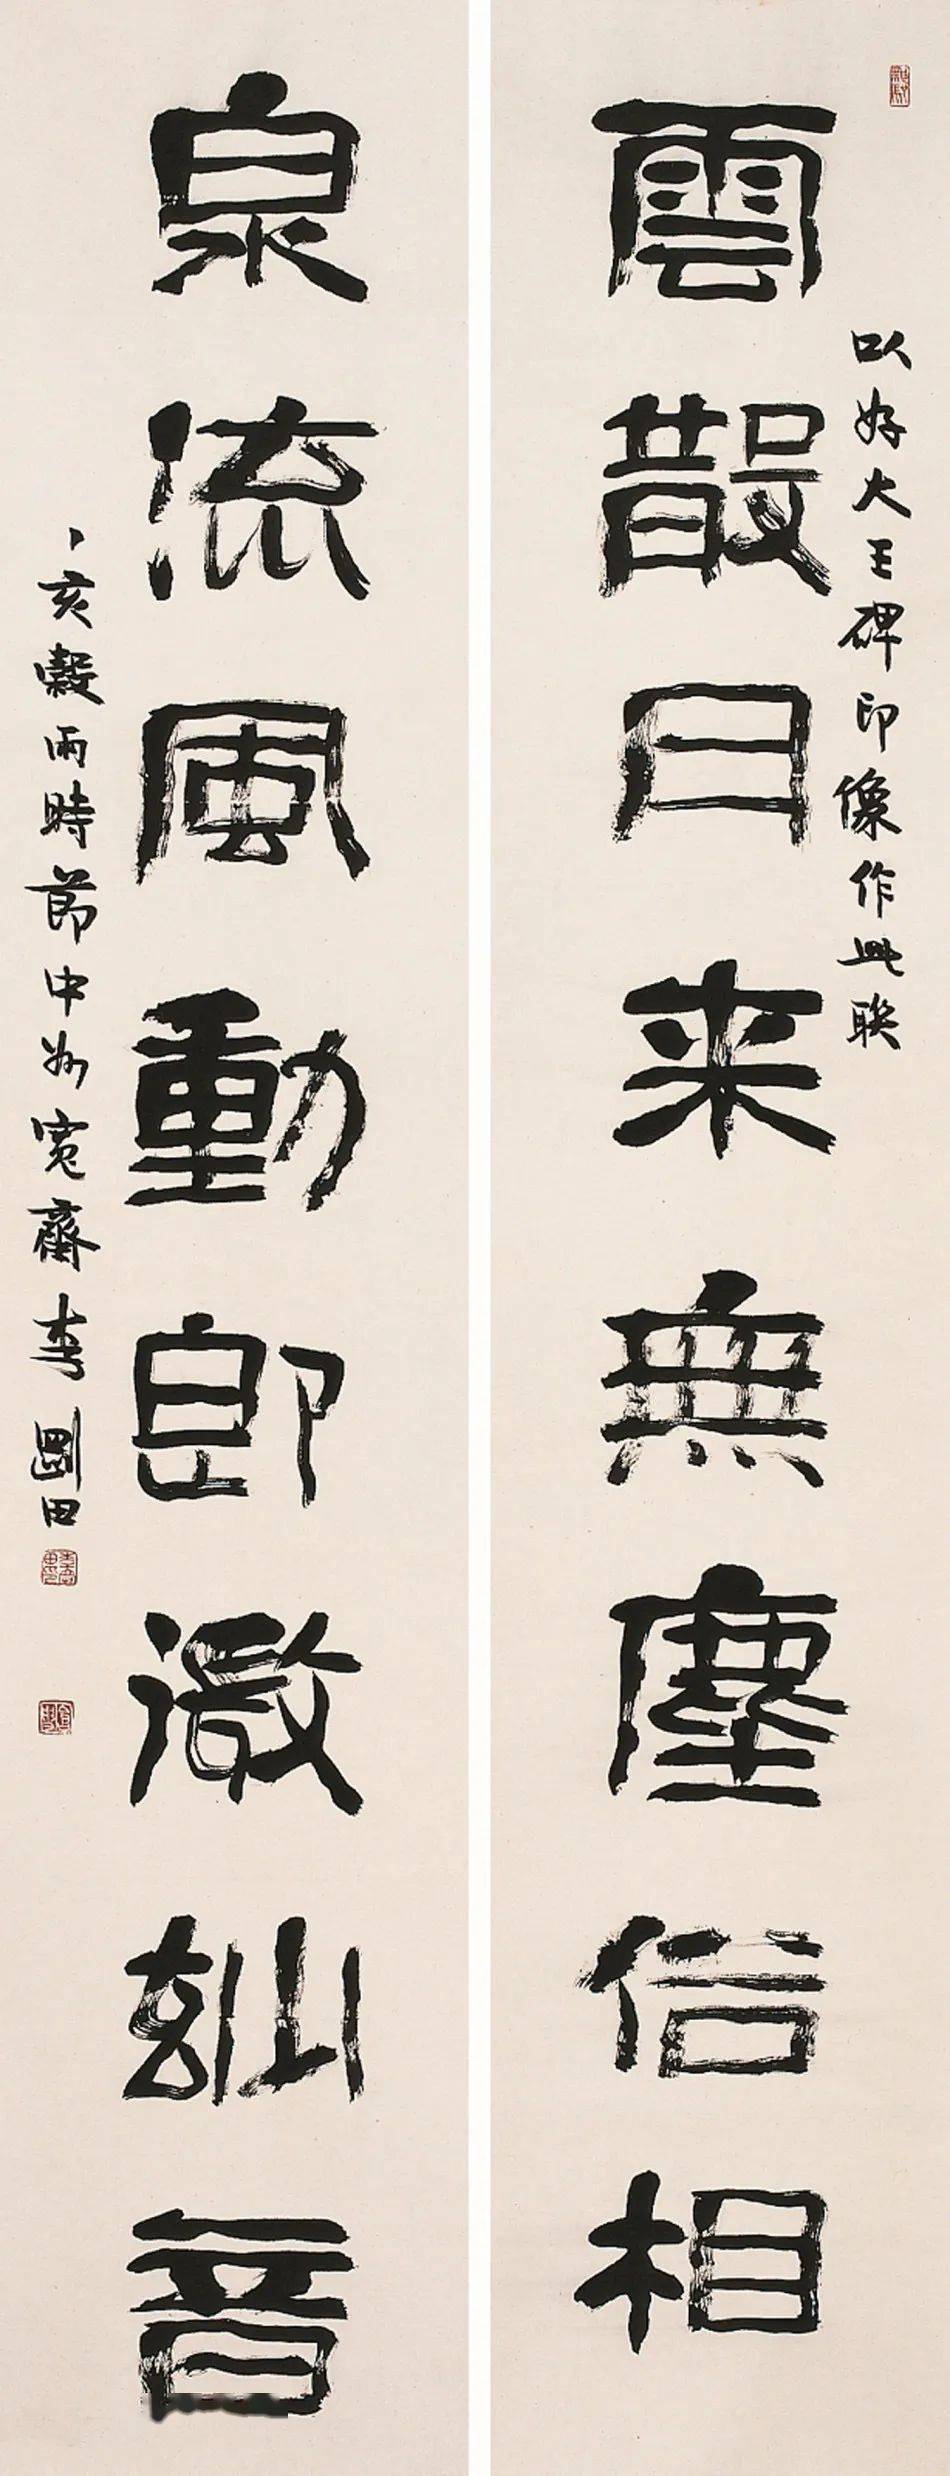 雲散日来無塵俗相
以好大王碑印像作此联
泉流風動即微玅音
丁亥穀雨時節中州寬齋李剛田